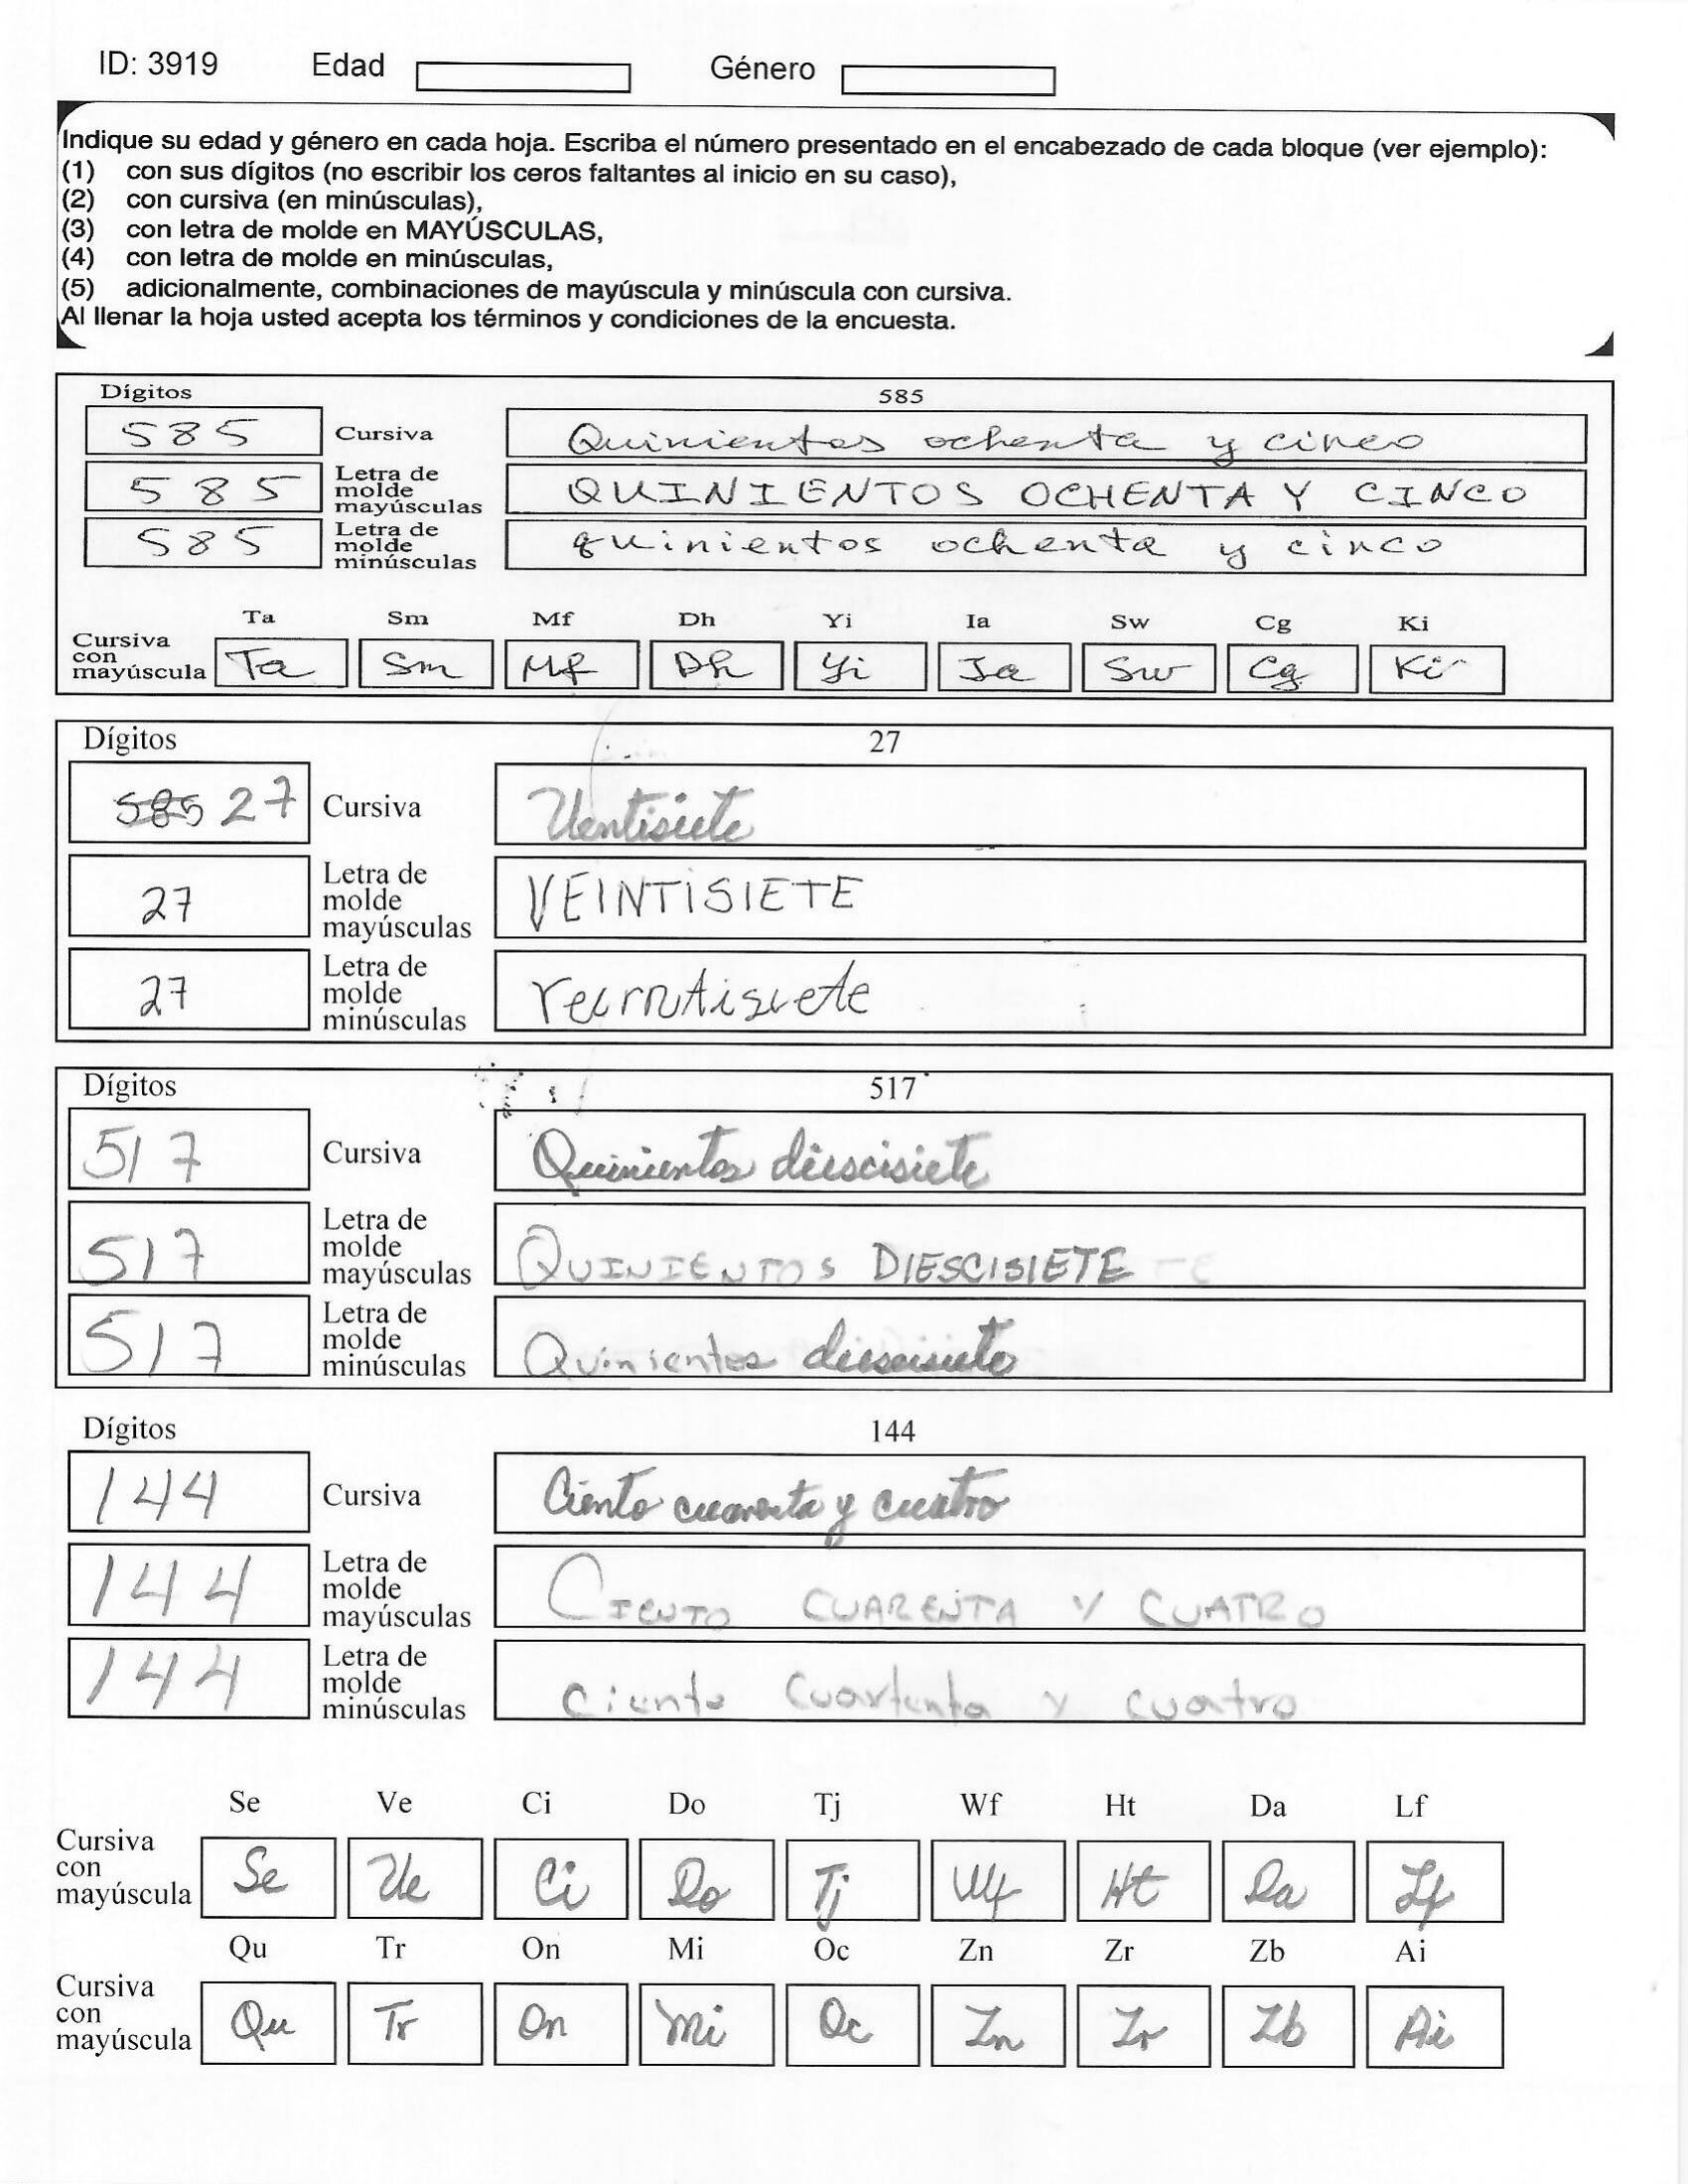 ID: 3919 Edad Género
Indique su edad y género en cada hoja. Escriba el número presentado en el encabezado de cada bloque (ver ejemplo):
(1) con sus dígitos (no escribir los ceros faltantes al inicio en su caso),
(2) con cursiva (en minúsculas),
(3) con letra de molde en MAYÚSCULAS,
(4) con letra de molde en minúsculas,
(5) adicionalmente, combinaciones de mayúscula y minúscula con cursiva.
Al llenar la hoja usted acepta los términos y condiciones de la encuesta.
Dígitos 585
585 Cursiva Quinientos ochenta y cinco
585 Letra de molde mayúsculas QUINIENTOS OCHENTA Y CINCO
585 Letra de molde minúsculas quinientos ochenta y cinco
Ta Sm Mf Dh Yi Ia Sw Cg Ki
Cursiva con mayúscula Ta Sm Mf Dh Yi Ia Sw Cg Ki
Dígitos 27
585 27 Cursiva Ventisiete
27 Letra de molde mayúsculas VEINTISIETE
27 Letra de molde minúsculas
Dígitos 517
517 Cursiva Quinientos diescisiete
517 Letra de molde mayúsculas QUINIENTOS DIESCISIETE
517 Letra de molde minúsculas Quinientos
Dígitos 144
144 Cursiva Ciento cuarenta y cuatro
144 Letra de molde mayúsculas CIENTO CUARENTA Y CUATRO
144 Letra de molde minúsculas Ciento Cuartenta y cuatro
Se Ve Ci Do Tj Wf Ht Da Lf
Cursiva con mayúscula Se Ve Ci Do Tj Wf Ht Da Lf
Qu Tr On Mi Oc Zn Zr Zb Ai
Cursiva con mayúscula Qu Tr On Mi Oc Zn Zr Zb Ai